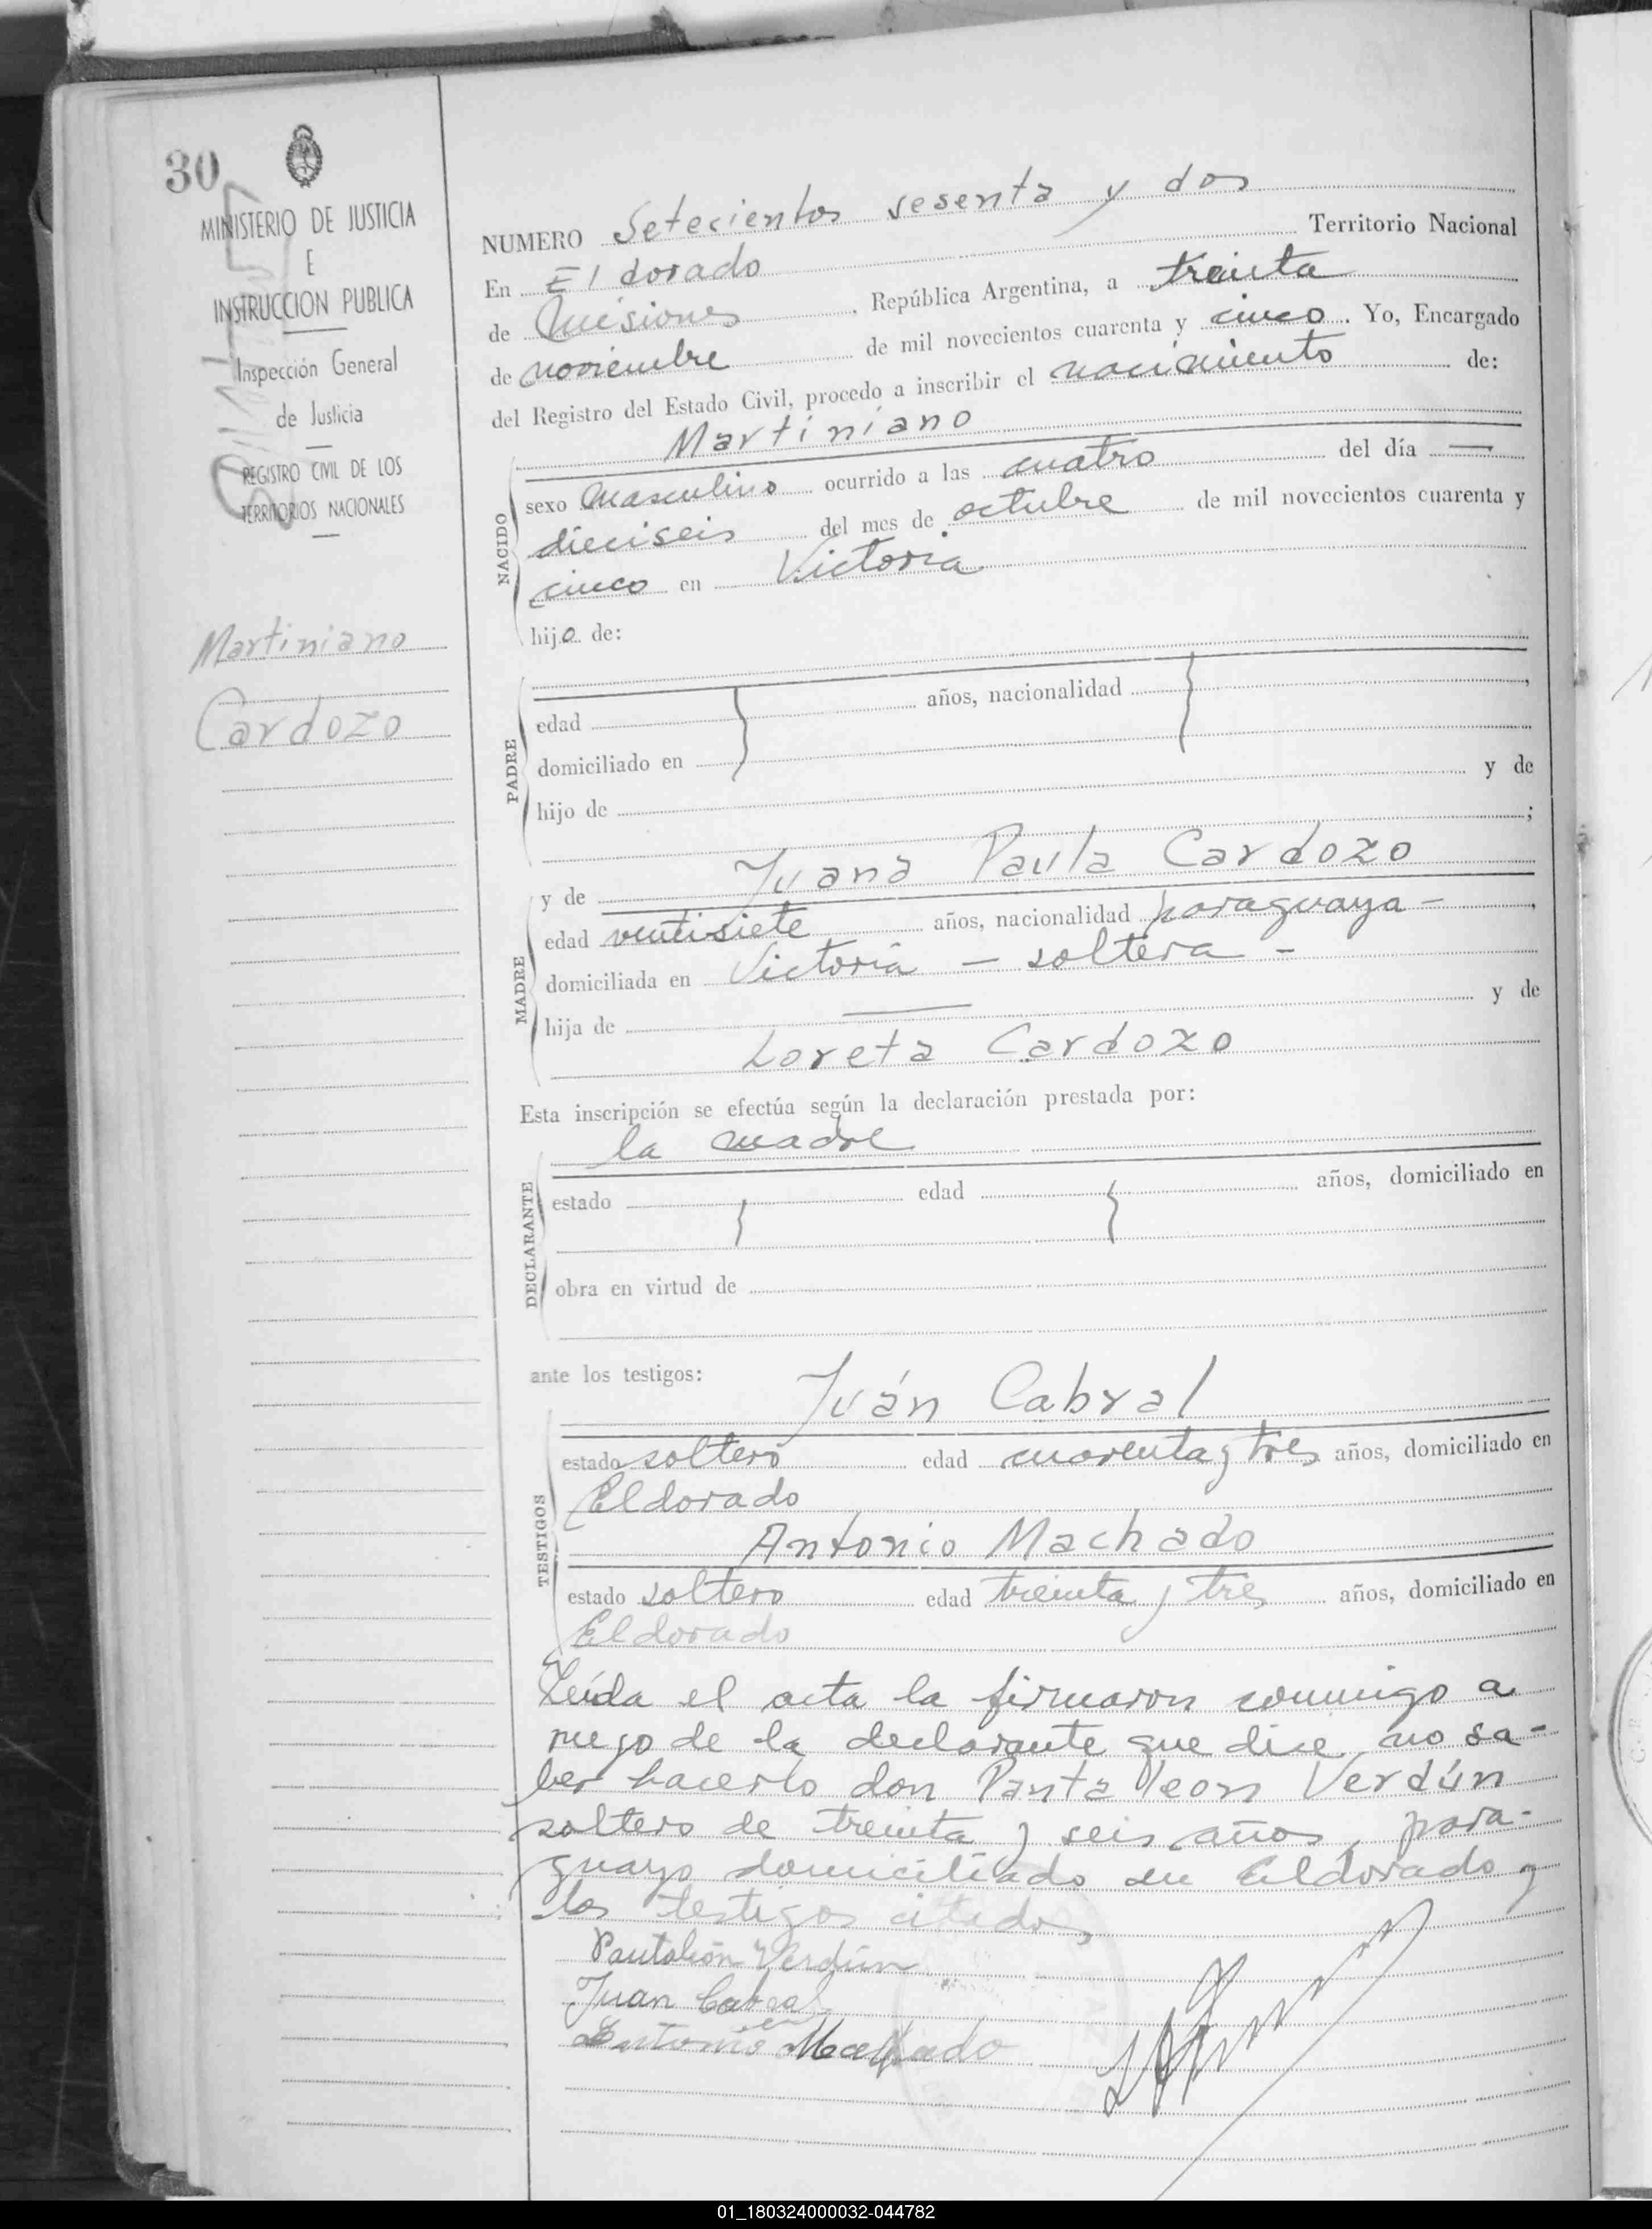 30
MINISTERIO DE JUSTICIA
E
INSTRUCCION PUBLICA
Inspección General
de Justicia
REGISTRO CIVIL DE LOS
TERRITORIOS NACIONALES
Martiniano
Cardozo
NUMERO Setecientos sesenta y dos
En El dorado Territorio Nacional
de Misiones, República Argentina, a treinta
de noviembre de mil novecientos cuarenta y cinco. Yo, Encargado
del Registro del Estado Civil, procedo a inscribir el nacimiento de:
Martiniano
NACIDO
sexo Masculino ocurrido a las cuatro del día —
dieciseis del mes de octubre de mil novecientos cuarenta y
cinco en Victoria
hijo de:
PADRE
edad años, nacionalidad
domiciliado en
hijo de y de
;
y de Juana Paula Cardozo
MADRE
edad ventisiete años, nacionalidad paraguaya -,
domiciliada en Victoria - soltera -
hija de — y de
Loreta Cardozo
Esta inscripción se efectúa según la declaración prestada por:
la madre
DECLARANTE
estado edad años, domiciliado en
obra en virtud de
ante los testigos:
Juán Cabral
TESTIGOS
estado soltero edad cuarenta y tres años, domiciliado en
Eldorado
Antonio Machado
estado soltero edad treinta y tres años, domiciliado en
Eldorado
Leída el acta la firmaron conmigo a
ruego de la declarante que dice no sa-
ber hacerlo don Pantaleon Verdún
soltero de treinta y seis años, para-
guayo domiciliado en Eldorado y
los testigos citados
Pantalión Verdún
Juan Cabral
Antonio Machado
01_180324000032-044782